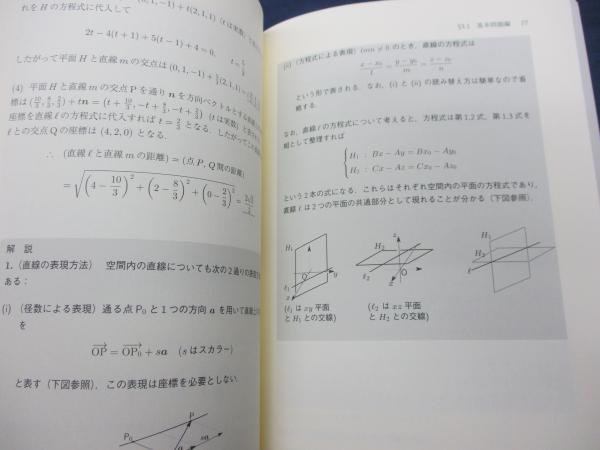 れを H の方程式に代入して
2t − 4(t + 1) + 5(t − 1) + 4 = 0,
したがって平面 H と直線 m の交点は
(4) 平面 H と直線 m の交点 P を通り n を方向ベクトルとする
座標を直線 ℓ の方程式に代入すれば t = 2/3 となる. したがってこの
ℓ との交点 Q の座標は (4, 2, 0) となる.
∴ (直線 ℓ と直線 m の距離) = (点 P, Q 間の距離)
= √((4 − 10/3)² + (2 − 8/3)² + (0 − 2/3)²) = 2√3/3
解 説
1. (直線の表現方法) 空間内の直線についても次の 2 通りの表現方
ある:
(i) (径数による表現) 通る点 P₀ と 1 つの方向 a を用いて直線上の
を
OP = OP₀ + sa (s はスカラー)
と表す (下図参照). この表現は座標を必要としない.
P
P₀
sa
§3.1 基本問題編 77
(ii) (方程式による表現) ℓmn ≠ 0 のとき, 直線の方程式は
(x − x₀)/ℓ = (y − y₀)/m = (z − z₀)/n
という形で表される. なお, (i) と (ii) の読み替え方は簡単なので省
略する.
なお, 直線 ℓ の方程式について考えると, 方程式は第 1,2 式, 第 1,3 式を
組として整理すれば
H₁ : Bx − Ay = Bx₀ − Ay₀
H₂ : Cx − Az = Cx₀ − Az₀
という 2 本の式になる. これらはそれぞれ空間内の平面の方程式であり,
直線 ℓ は 2 つの平面の共通部分として現れることが分かる (下図参照).
H₁
z
O
y
ℓ₁
x
H₂
z
O
ℓ₂
x
H₁
H₂
ℓ
(ℓ₁ は xy 平面
と H₁ との交線)
(ℓ₂ は xz 平面
と H₂ との交線)